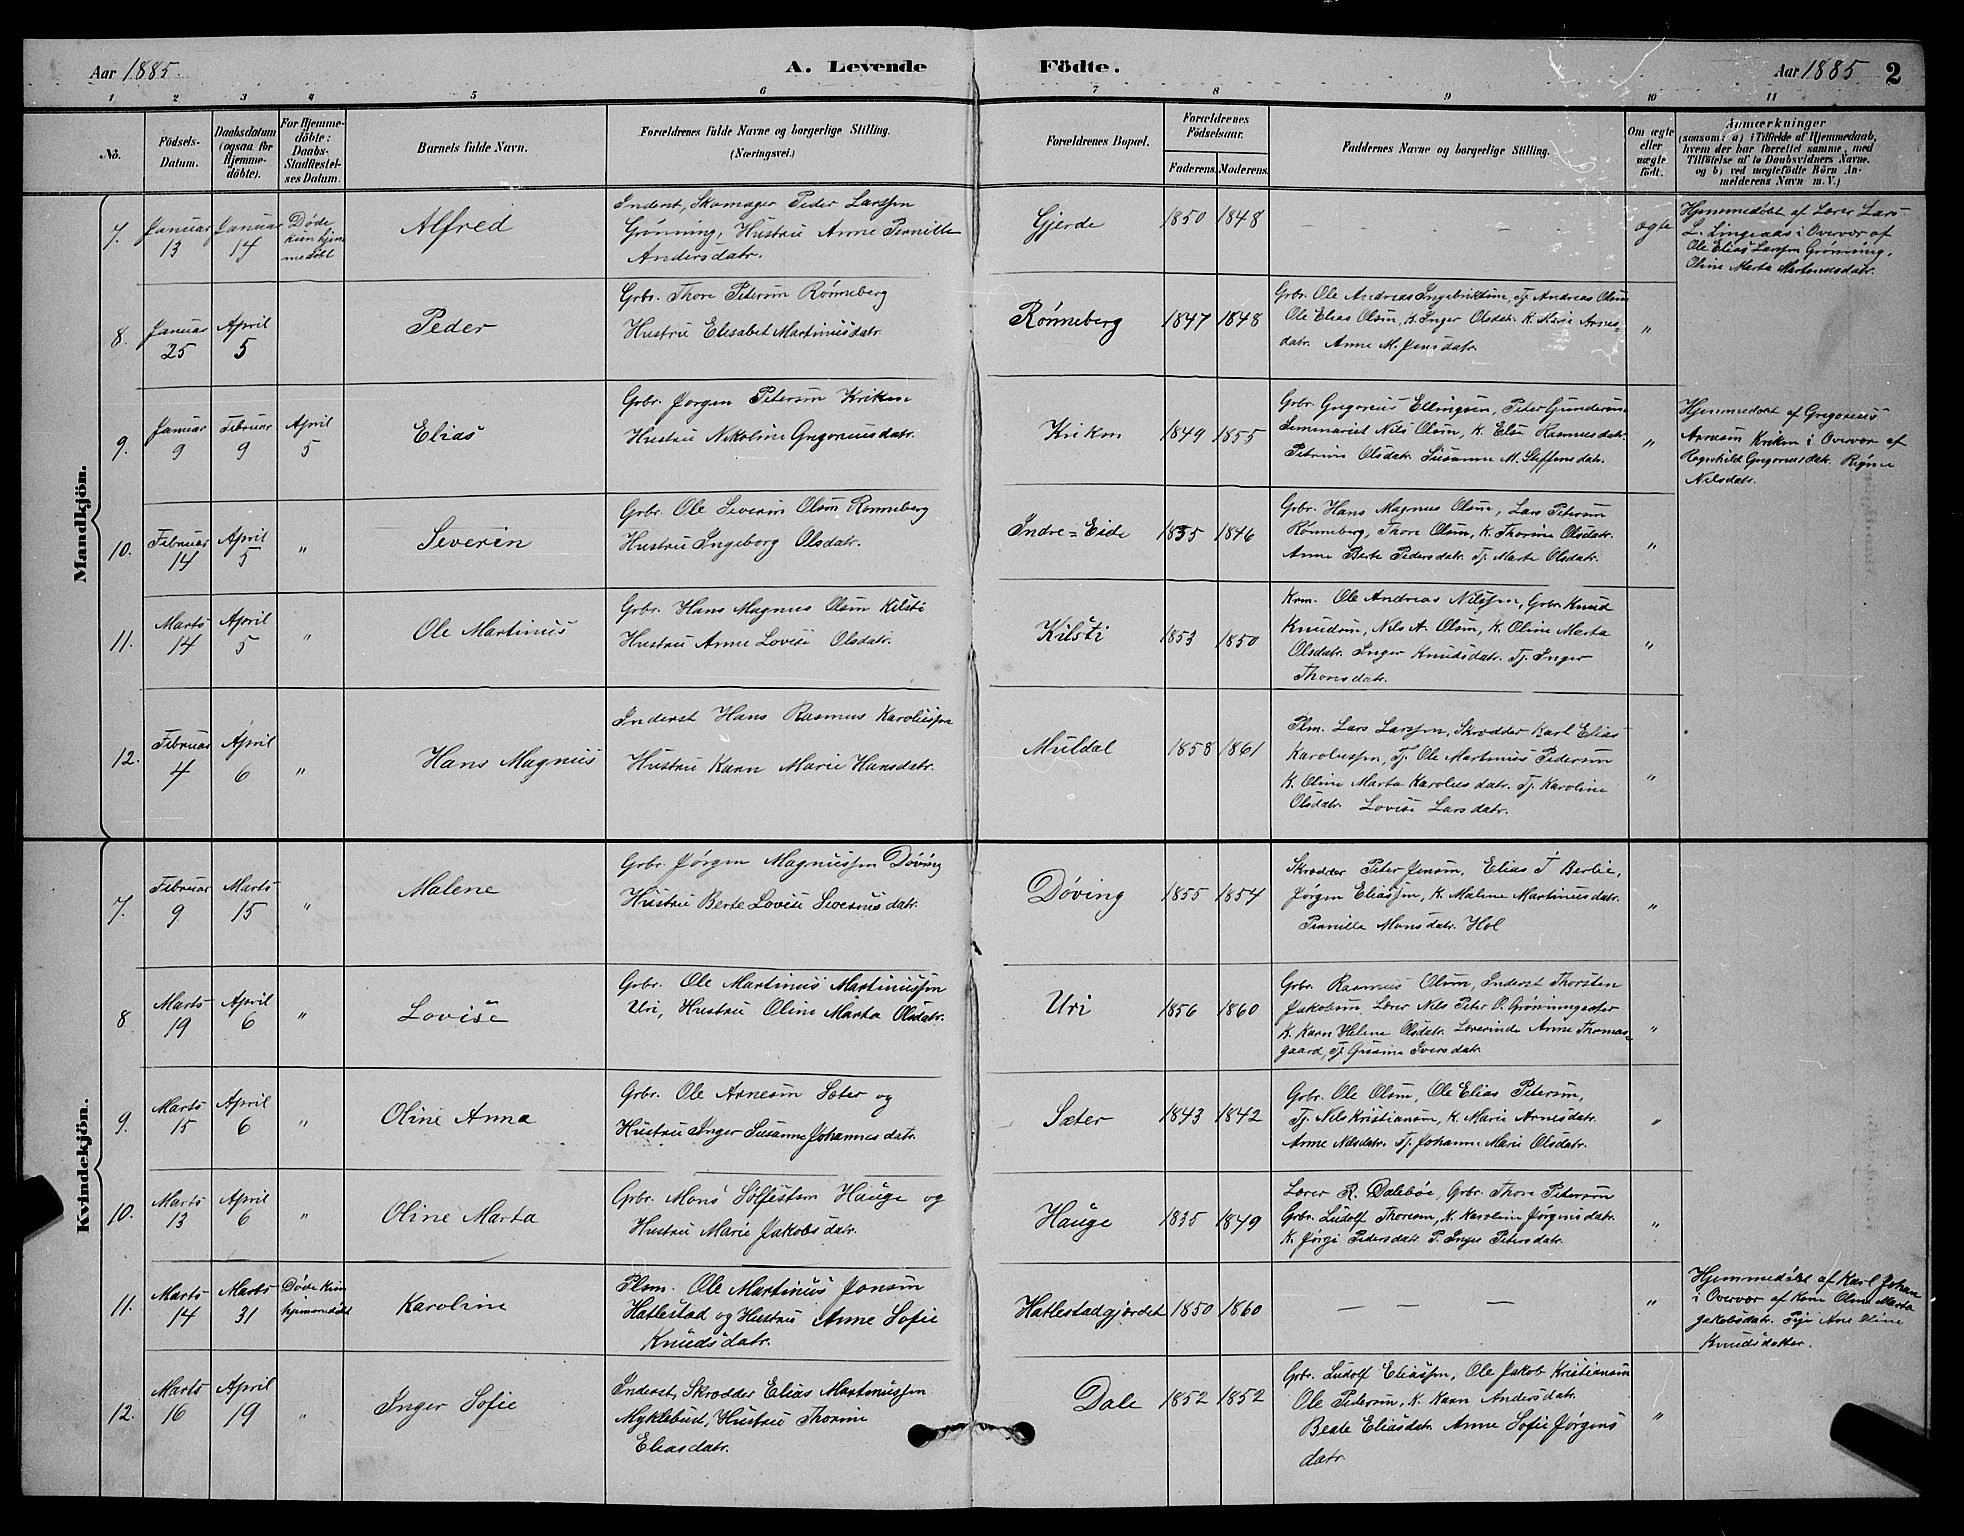 Aar 1885. A. Levende Födte. Aar 1885 2
1 2 3 4 5 6 7 8 9 10 11
No.
Födsels-
Datum.
Daabsdatum
(ogsaa for
Hjemme-
döbte).
For Hjemme-
döbte:
Daabs-
Stadfæstel-
ses Datum.
Barnets fulde Navn.
Forældrenes fulde Navne og borgerlige Stilling.
(Næringsvei.)
Forældrenes Bopæl.
Forældrenes
Födselsaar.
Faderens. Moderens.
Faddernes Navne og borgerlige Stilling.
Om ægte
eller
uægte
födt.
Anmærkninger
(saasom: a) i Tilfælde af Hjemmedaab,
hvem der har forrettet samme, med
Tilföielse af to Daabsvidners Navne,
og b) ved uægtefödte Börn An-
melderens Navn m. V.)
Mandkjön.
7. Januar 13
Januar 14
Døde
kun hjem
medøbt
Alfred
Inderst, Skomager Peder Larssen
Grønning, Hustru Anne Pernille
Andersdatr.
Gjerde
1850 1848
— — —
ægte
Hjemmedøbt af Lærer Lars
L. Lingaas i Overvær af
Ole Elias Larssen Grønning,
Oline Marta Martinusdatr.
8. Januar 25
April 5
Peder
Grbr. Thore Petersen Rønneberg
Hustru Elisabet Martinusdatr.
Rønneberg
1847 1848
Grbr. Ole Andreas Ingebriktsen, Tj. Andreas Olsen
Ole Elias Olsen, K. Inger Olsdatr. K. Marie Arnes-
datr. Anne M. Jensdatr.
"
9. Januar 9
Februar 9
April 5
Elias
Grbr. Jørgen Petersen Kriken
Hustru Nikoline Gregoriusdatr.
Kriken
1849 1855
Grbr. Gregorius Ellingsen, Peter Gundersen
Seminarist Nils Olsen, K. Else Rasmusdatr.
Petrine Olsdatr. Susanne M. Steffensdatr.
"
Hjemmedøbt af Gregorius
Arnesen Kriken i Overvær af
Ragnhild Gregoriusdatr. Regine
Nilsdatr.
10. Februar 14
April 5
"
Severin
Grbr. Ole Severin Olsen Rønneberg
Hustru Ingeborg Olsdatr.
Indre=Eide
1835 1846
Grbr. Hans Magnus Olsen, Lars Petersen
Rønneberg, Thore Olsen, K. Thorine Olsdatr.
Anne Berte Pedersdatr. Tj. Marta Olsdatr.
"
11. Marts 14
April 5
"
Ole Martinus
Grbr. Hans Magnus Olsen Kilsti
Hustru Anne Lovise Olsdatr.
Kilsti
1853 1850
Krm. Ole Andreas Nilssen, Grbr. Knud
Knudsen, Nils A. Olsen, K. Oline Marta
Olsdatr. Inger Knudsdatr. Tj. Inger
Thoresdatr.
"
12. Februar 4
April 6
"
Hans Magnus
Inderst Hans Rasmus Karolussen
Hustru Karn Marie Hansdatr.
Muldal
1858 1861
Plm. Lars Larssen, Skrædder Karl Elias
Karolussen, Tj. Ole Martinus Pedersen
K. Oline Marta Karolusdatr. Tj. Karoline
Olsdatr. Lovise Larsdatr.
"
Kvindekjön.
7. Februar 9
Marts 15
"
Malene
Grbr. Jørgen Magnussen Døving
Hustru Berte Lovise Severinsdatr.
Døving
1855 1854
Skrædder Peter Jensen, Elias T Berlie,
Jørgen Eliassen, K. Malene Martinusdatr.
Pernilla Monsdatr. Hol
"
8 Marts 19
April 6
"
Lovise
Grbr. Ole Martinus Martinussen
Uri, Hustru Oline Marta Olsdatr.
Uri
1856 1860
Grbr. Rasmus Olsen, Inderst Thorsten
Jakobsen, Lærer Nils Peter O. Grønningsæter
K. Karn Helene Olsdatr. Lærerinde Anne Thomas-
gaard, Tj. Gusine Iversdatr.
"
9. Marts 15
April 6
"
Oline Anna
Grbr. Ole Arnesen Sæter og
Hustru Inger Susanne Johannesdatr.
Sæter
1843 1842
Grbr. Ole Olsen, Ole Elias Petersen,
Tj. Nils Kristiansen, K. Marie Arnesdatr.
Anne Nilsdatr. Tj. Johanne Marie Olsdatr.
"
10. Marts 13
April 6
"
Oline Marta
Grbr. Mons Sølfestsen Hauge og
Hustru Marie Jakobsdatr.
Hauge
1835 1849
Lærer R. Dalebøe, Grbr. Thore Petersen
Grbr. Ludolf Thoresen, K. Karoline Jørgensdatr.
K. Jørgi Pedersdatr. P. Inger Petersdatr.
"
11. Marts 14
Marts 31
Døde kun
hjemmedøbt
Karoline
Plsm. Ole Martinus Jonsen
Hatlestad og Hustru Anne Sofie
Knudsdatr.
Hatlestadgjerdet
1850 1860
— — —
"
Hjemmedøbt af Karl Johan
i Overvær af Kone Oline Marta
Jakobsdatr. Pige Ane Oline
Knudsdatter.
12. Marts 16
April 19
"
Inger Sofie
Inderst, Skrædder Elias Martinussen
Myklebust, Hustru Thorine
Eliasdatr.
Dale
1852 1852
Grbr. Ludolf Eliassen, Ole Jakob Kristiansen
Ole Petersen, K. Karn Andersdatr.
Beate Eliasdatr. Anne Sofie Jørgens
datr.
"